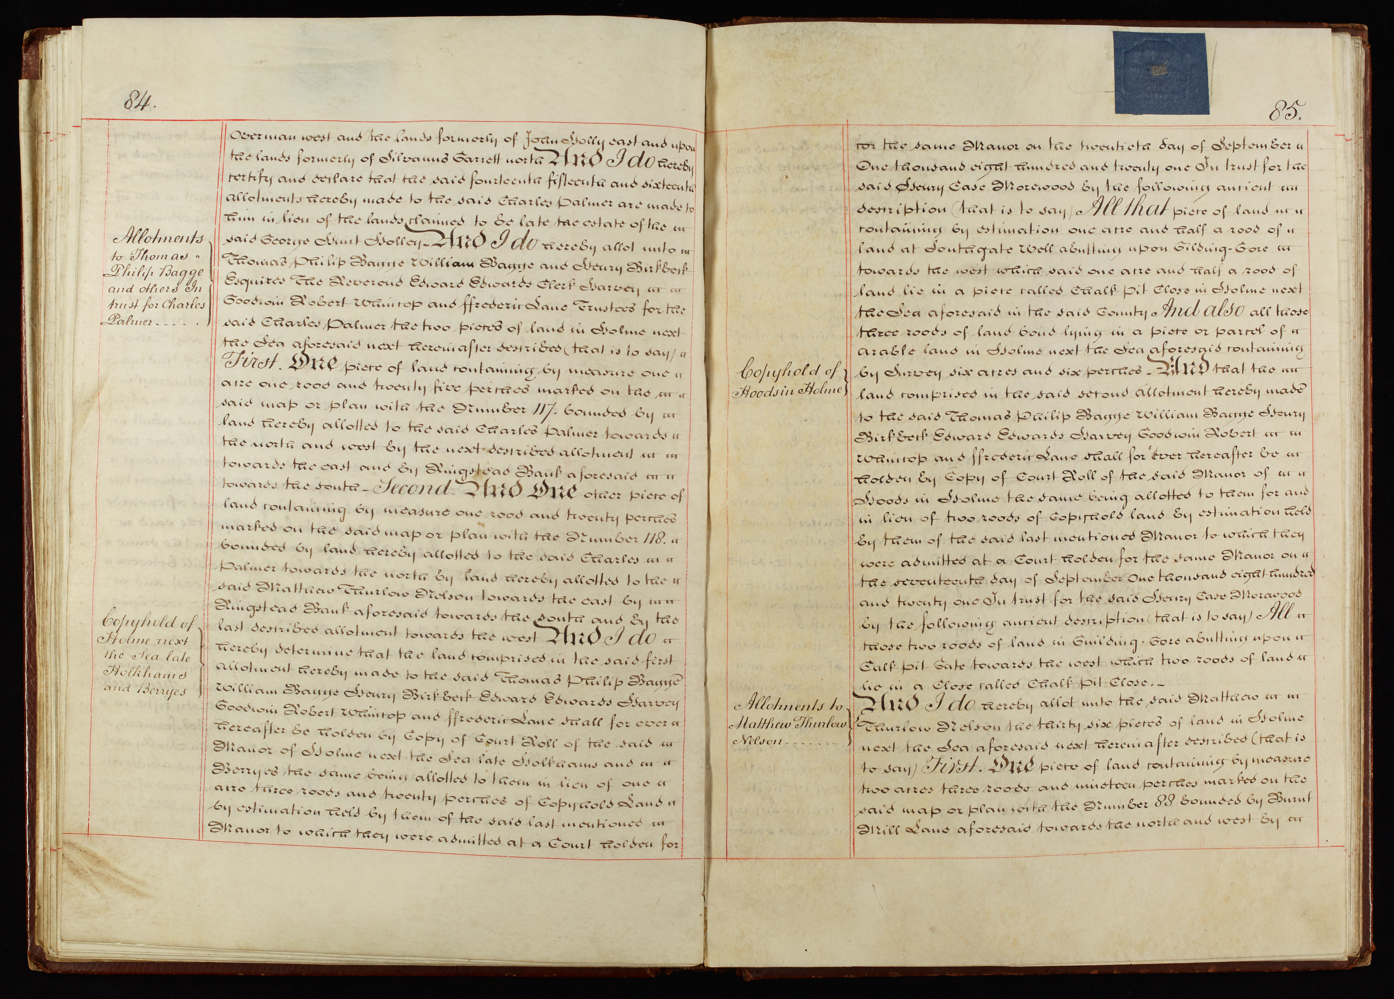 84.
Overman west and the lands formerly of John Holly east and upon
the lands formerly of Silvanus Garrett north And I do hereby
certify and declare that the said fourteenth fifteenth and sixteenth
allotments hereby made to the said Charles Palmer are made to
him in lieu of the lands claimed to be late the estate of the
said George Hunt Holley - And I do hereby allot unto
Thomas Philip Bagge William Bagge and Henry Birkbeck
Esquires The Reverend Edward Edwards Clerk Harvey
Goodwin Robert Whincop and ffrederic Lane Trustees for the
said Charles Palmer the two pieces of land in Holme next
the Sea aforesaid next hereinafter described (that is to say)
First. One piece of land containing by measure one
acre one rood and twenty five perches marked on the
said map or plan with the Number 117. bounded by
land hereby allotted to the said Charles Palmer towards
the north and west by the next described allotment
towards the east and by Ringstead Bank aforesaid
towards the south - Second. And One other piece of
land containing by measure one rood and twenty perches
marked on the said map or plan with the Number 118.
bounded by land hereby allotted to the said Charles
Palmer towards the north by land hereby allotted to the
said Matthew Thurlow Nelson towards the east by
Ringstead Bank aforesaid towards the south and by the
last described allotment towards the west And I do
hereby determine that the land comprised in the said first
allotment hereby made to the said Thomas Philip Bagge
William Bagge Henry Birkbeck Edward Edwards Harvey
Goodwin Robert Whincop and ffrederic Lane shall for ever
hereafter be holden by Copy of Court Roll of the said
Manor of Holme next the Sea late Holkhams and
Berryes the same being allotted to them in lieu of one
acre three roods and twenty perches of Copyhold Land
by estimation held by them of the said last mentioned
Manor to which they were admitted at a Court holden for
Allotments
to Thomas
Philip Bagge
and others In
trust for Charles
Palmer
Copyhold of
Holme next
the Sea late
Holkhams
and Berryes
85.
for the same Manor on the twentieth day of September
One thousand eight hundred and twenty one In trust for the
said Henry Case Morewood by the following ancient
description (that is to say) All that piece of land
containing by estimation one acre and half a rood of
land at Southgate Well abutting upon Gilding-Gore
towards the west which said one acre and half a rood of
land lie in a piece called Chalk Pit Close in Holme next
the Sea aforesaid in the said County And also all those
three roods of land bond lying in a piece or parcel of
arable land in Holme next the Sea aforesaid containing
by Survey six acres and six perches - And that the
land comprised in the said second allotment hereby made
to the said Thomas Philip Bagge William Bagge Henry
Birkbeck Edward Edwards Harvey Goodwin Robert
Whincop and ffrederic Lane shall for ever hereafter be
holden by Copy of Court Roll of the said Manor of
Hoods in Holme the same being allotted to them for and
in lieu of two roods of Copyhold land by estimation held
by them of the said last mentioned Manor to which they
were admitted at a Court holden for the same Manor on
the seventeenth day of September One thousand eight hundred
and twenty one In trust for the said Henry Case Morewood
by the following ancient description (that is to say) All
those two roods of land in Guilding-Gore abutting upon
Calk Pit Gate towards the west which two roods of land
lie in a Close called Chalk Pit Close. -
And I do hereby allot unto the said Matthew
Thurlow Nelson the thirty six pieces of land in Holme
next the Sea aforesaid next hereinafter described (that is
to say) First. One piece of land containing by measure
two acres three roods and nineteen perches marked on the
said map or plan with the Number 88 bounded by Burnt
Mill Lane aforesaid towards the north and west by
Copyhold of
Hoods in Holme
Allotments to
Matthew Thurlow
Nelson